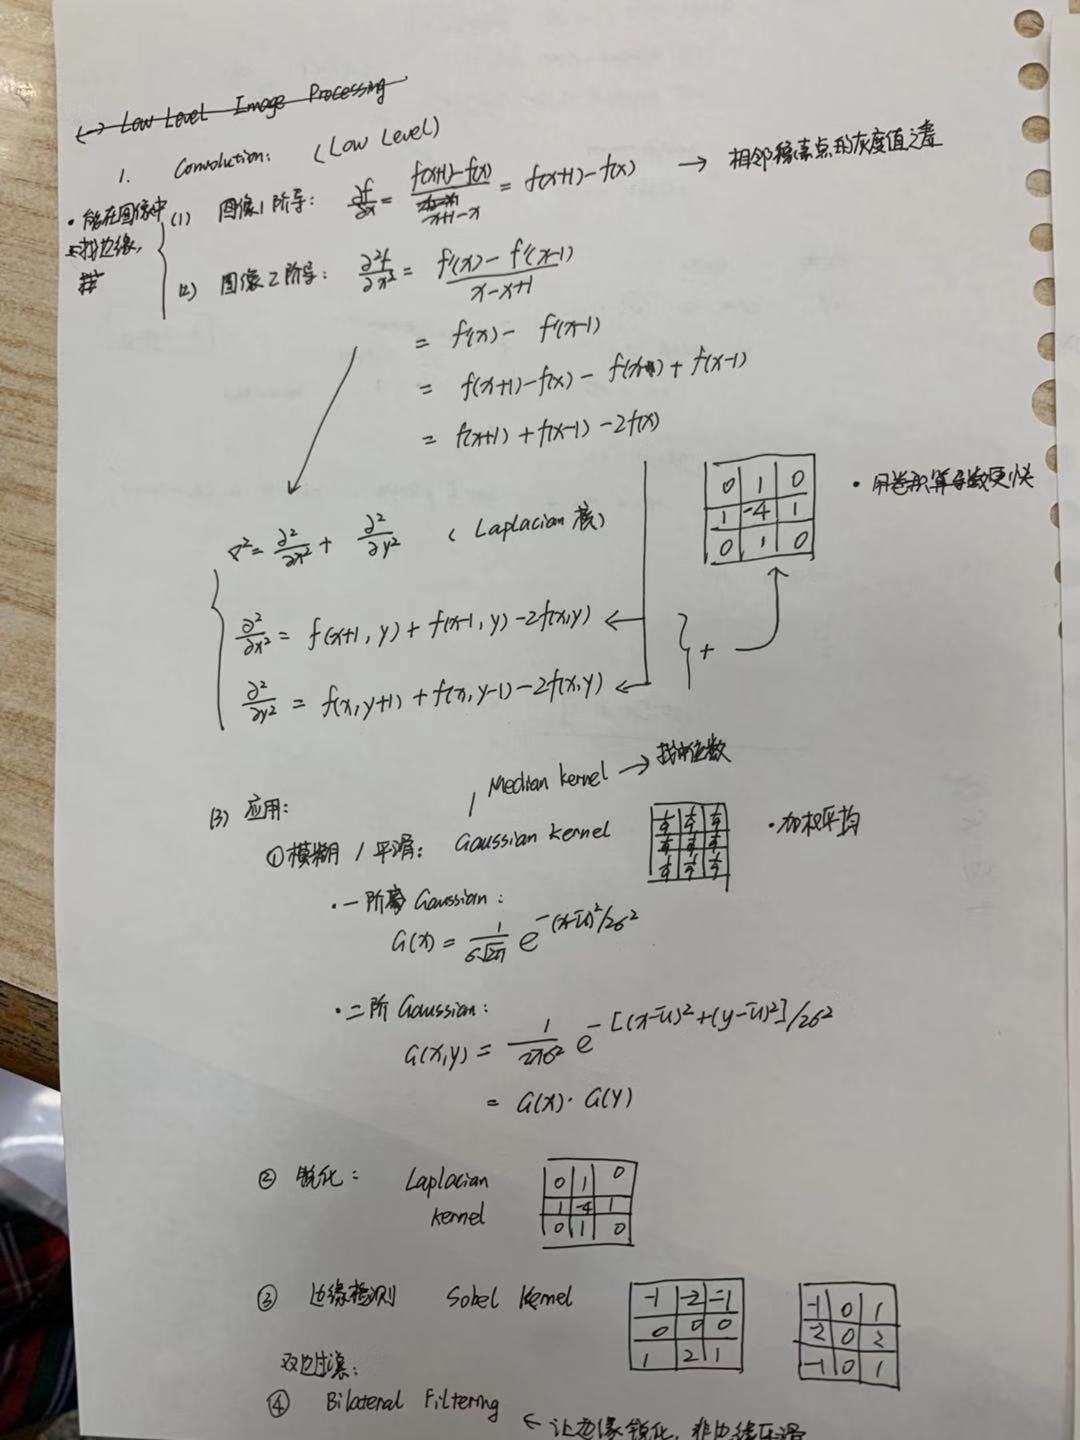 (一) Low Level Image Processing
1. Convolution: (Low Level)
• 能在图像中
找边缘,
(1) 图像1阶导: ∂f/∂x = (f(x+1)-f(x))/(x+1-x) = f(x+1)-f(x) → 相邻像素点的灰度值之差
(2) 图像2阶导: ∂²f/∂x² = (f'(x)-f'(x-1))/(x-x+1)
= f'(x) - f'(x-1)
= f(x+1)-f(x) - f(x) + f(x-1)
= f(x+1) + f(x-1) - 2f(x)
0 1 0
1 -4 1
0 1 0
• 用卷积算导数更快
∇² = ∂²/∂x² + ∂²/∂y² (Laplacian 核)
∂²/∂x² = f(x+1, y) + f(x-1, y) - 2f(x,y) ←
∂²/∂y² = f(x,y+1) + f(x,y-1) - 2f(x,y) ←
} +
(3) 应用:
Median kernel → 找中位数
① 模糊 / 平滑: Gaussian kernel
1/9 1/9 1/9
1/9 1/9 1/9
1/9 1/9 1/9
• 加权平均
• 一阶 Gaussian:
G(x) = 1/(σ√2π) e^-(x-u)²/2σ²
• 二阶 Gaussian:
G(x,y) = 1/(2πσ²) e^-[(x-u)²+(y-u)²]/2σ²
= G(x) · G(y)
② 锐化: Laplacian
kernel
0 1 0
1 -4 1
0 1 0
③ 边缘检测 Sobel Kernel
-1 -2 -1
0 0 0
1 2 1
-1 0 1
-2 0 2
-1 0 1
双边过滤:
④ Bilateral Filtering
← 让边缘锐化, 非边缘平滑